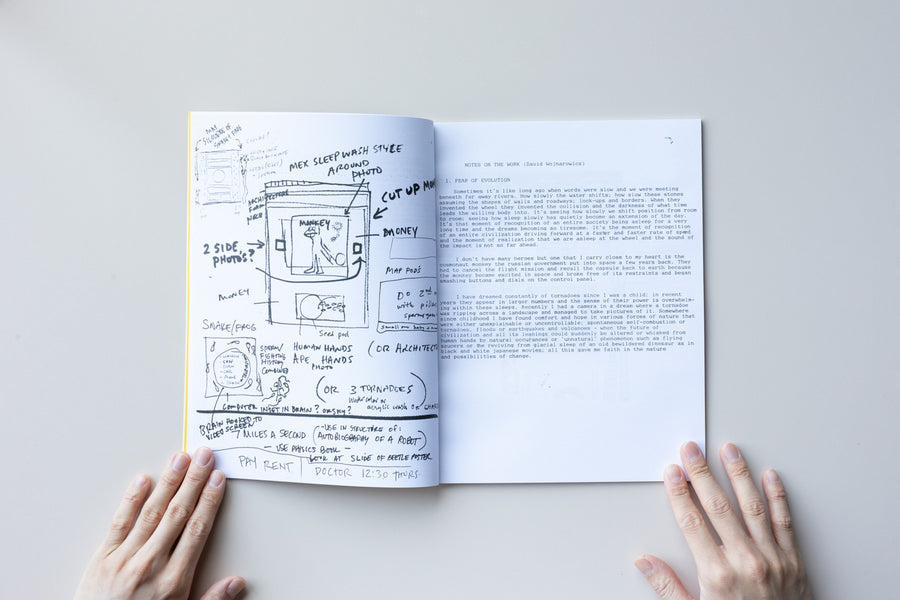 MEX SLEEP WASH STYLE
AROUND
PHOTO
CUT UP
ARCHITECTURE
MONKEY
MONEY
2 SIDE
PHOTO'S?
MAP
MONEY
DO 2nd
with
Seed pod
SNAKE/FROG
SPERM/
FISHING
HISTORY
COMBINED
HUMAN HANDS
APE HANDS
PHOTO
(OR ARCHITECT
(OR 3 TORNADOES)
watercolor or
acrylic wash or
COMPUTER INSET IN BRAIN? OR SKY?
BRAIN HOOKED TO
VIDEO SCREEN
7 MILES A SECOND
(-USE IN STRUCTURE OF:
AUTOBIOGRAPHY OF A ROBOT)
- USE PHYSICS BOOK -
LOOK AT SLIDE OF BEETLE
PAY RENT
DOCTOR 12:30 THURS.
NOTES ON THE WORK (David Wojnarowicz)
1. FEAR OF EVOLUTION
Sometimes it's like long ago when words were slow and we were meeting
beneath far away rivers. How slowly the water shifts; how slow these stones
assuming the shapes of walls and roadways; lock-ups and borders. When they
invented the wheel they invented the collision and the darkness of what time
leads the willing body into. It's seeing how slowly we shift position from room
to room; seeing how sleep slowly has quietly become an extension of the day.
It's that moment of recognition of an entire society being asleep for a very
long time and the dreams becoming so tiresome. It's the moment of recognition
of an entire civilization driving forward at a faster and faster rate of speed
and the moment of realization that we are asleep at the wheel and the sound of
the impact is not so far ahead.
I don't have many heroes but one that I carry close to my heart is the
cosmonaut monkey the russian government put into space a few years back. They
had to cancel the flight mission and recall the capsule back to earth because
the monkey became excited in space and broke free of its restraints and began
smashing buttons and dials on the control panel.
I have dreamed constantly of tornadoes since I was a child; in recent
years they appear in larger numbers and the sense of their power is overwhelm-
ing within these visions. Recently I had a camera in a dream where a tornado
was ripping across a landscape and managed to take pictures of it. Somewhere
since childhood I have found comfort and hope in various forces of nature that
were either unexplainable or uncontrollable; spontaneous self-combustion or
tornadoes, floods or earthquakes and volcanoes - when the future of
civilization and all its leanings could suddenly be altered or whisked from
human hands by natural occurances or 'unnatural' phenomenon such as flying
saucers or the reviving from glacial sleep of an old bewildered dinosaur as in
black and white japanese movies; all this gave me faith in the nature
and possibilities of change.